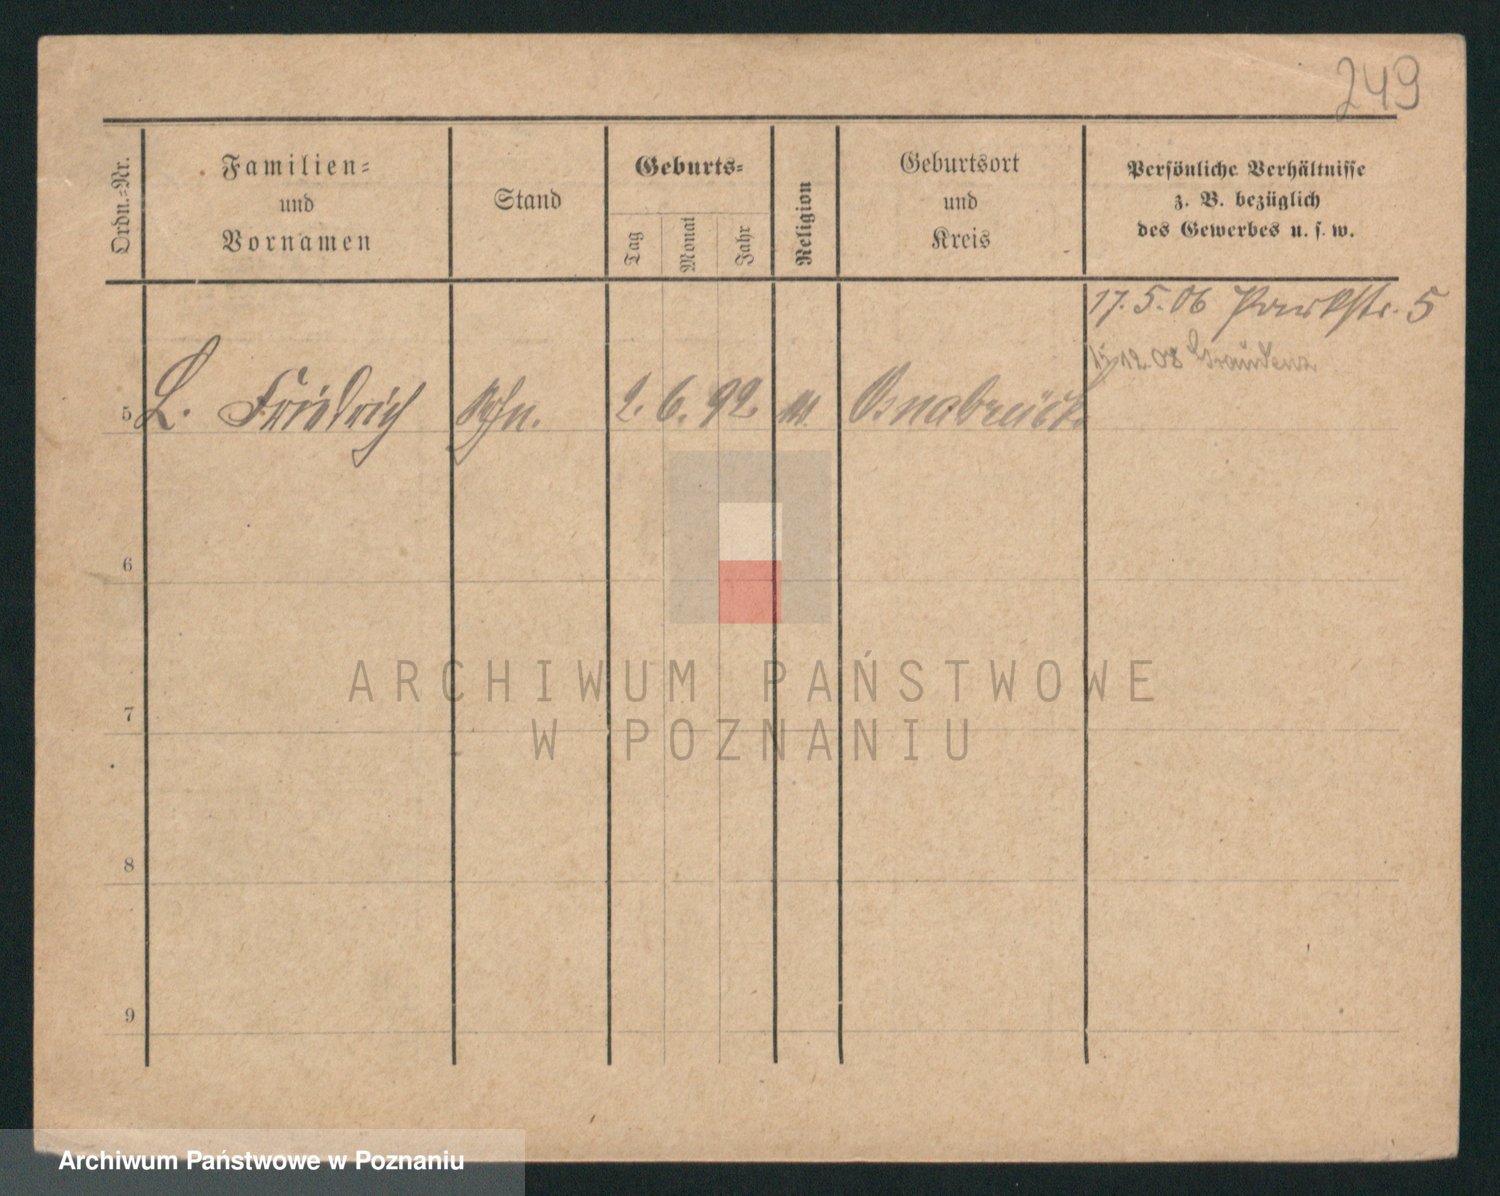 249
Ordn.=Nr.
Familien=
und
Vornamen
Stand
Geburts=
Tag
Monat
Jahr
Religion
Geburtsort
und
Kreis
Persönliche Verhältnisse
z. B. bezüglich
des Gewerbes u. s. w.
17. 5. 06 Parkstr. 5
12. 08 Graudenz
5 L. Friedrich Sohn. 2. 6. 92. Osnabrück.
6
7
8
9
ARCHIWUM PAŃSTWOWE
W POZNANIU
Archiwum Państwowe w Poznaniu